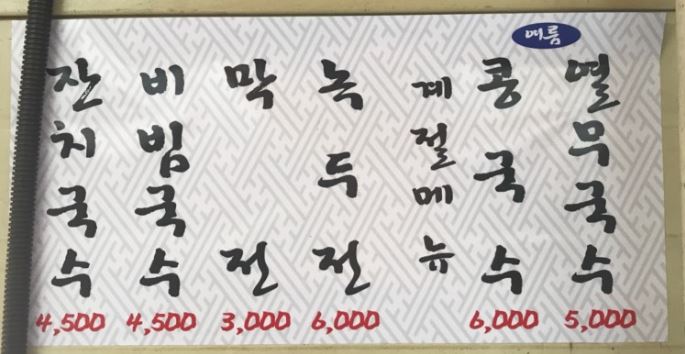 잔치국수 4,500
비빔국수 4,500
막전 3,000
녹두전 6,000
계절메뉴
여름
콩국수 6,000
열무국수 5,000